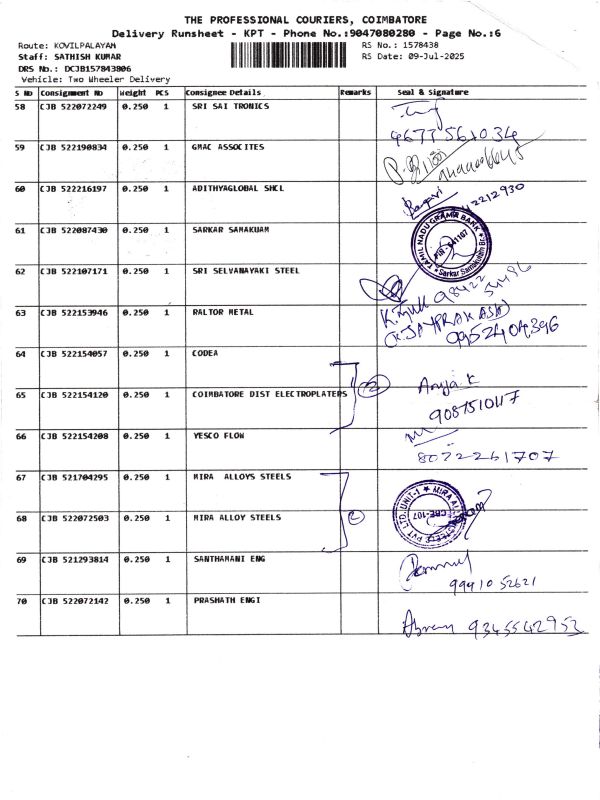 THE PROFESSIONAL COURIERS, COIMBATORE
Delivery Runsheet - KPT - Phone No.:9047080280 - Page No.:6
Route: KOVILPALAYAM
RS No.: 1578438
Staff: SATHISH KUMAR
RS Date: 09-Jul-2025
DRS No.: DCJB157843806
Vehicle: Two Wheeler Delivery
S No Consignment No Weight PCS Consignee Details Remarks Seal & Signature
58 CJB 522072249 0.250 1 SRI SAI TRONICS
4677561034
59 CJB 522190834 0.250 1 GMAC ASSOCITES
60 CJB 522216197 0.250 1 ADITHYAGLOBAL SHCL
61 CJB 522087430 0.250 1 SARKAR SAMAKUAM
TAMIL NADU GRAMA BANK
Sarkar Samakulam Br.
62 CJB 522107171 0.250 1 SRI SELVANAYAKI STEEL
98422 54486
63 CJB 522153946 0.250 1 RALTOR METAL
(K.JAYPRAKASH)
9952404396
64 CJB 522154057 0.250 1 CODEA
65 CJB 522154120 0.250 1 COIMBATORE DIST ELECTROPLATERS 2
Anuja K
66 CJB 522154208 0.250 1 YESCO FLOW
8072261707
67 CJB 521704295 0.250 1 MIRA ALLOYS STEELS
68 CJB 522072503 0.250 1 MIRA ALLOY STEELS 2
CBE-107
69 CJB 521293814 0.250 1 SANTHAMANI ENG
99410 52621
70 CJB 522072142 0.250 1 PRASHATH ENGI
9345542953